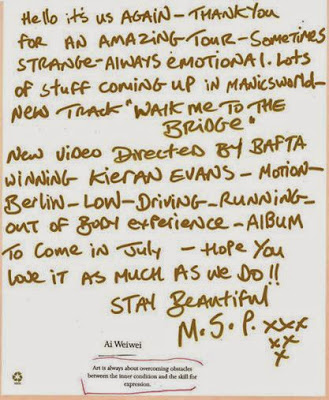 Hello it's us AGAIN - THANK YOU
FOR AN AMAZING TOUR - SOMETIMES
STRANGE - ALWAYS EMOTIONAL. Lots
OF STUFF COMING UP IN MANICSWORLD -
NEW TRACK "WALK ME TO THE
BRIDGE"
NEW VIDEO DIRECTED BY BAFTA
WINNING KIERAN EVANS - MOTION -
BERLIN - LOW - DRIVING - RUNNING -
OUT OF BODY EXPERIENCE - ALBUM
TO COME IN JULY - HOPE YOU
LOVE IT AS MUCH AS WE DO!!
STAY BEAUTIFUL
M.S.P. xxx
xx
x
Ai Weiwei
Art is always about overcoming obstacles
between the inner condition and the skill for
expression.